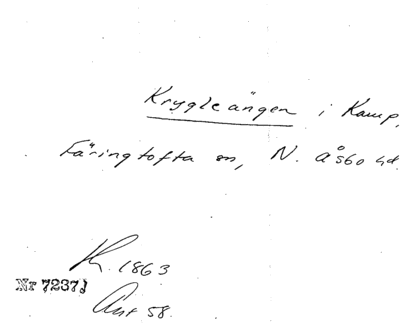 Krygleängen i Kamp,
Färingtofta sn, N. Åsbo hd.
K. 1863
Nr 7237
Ant 58.